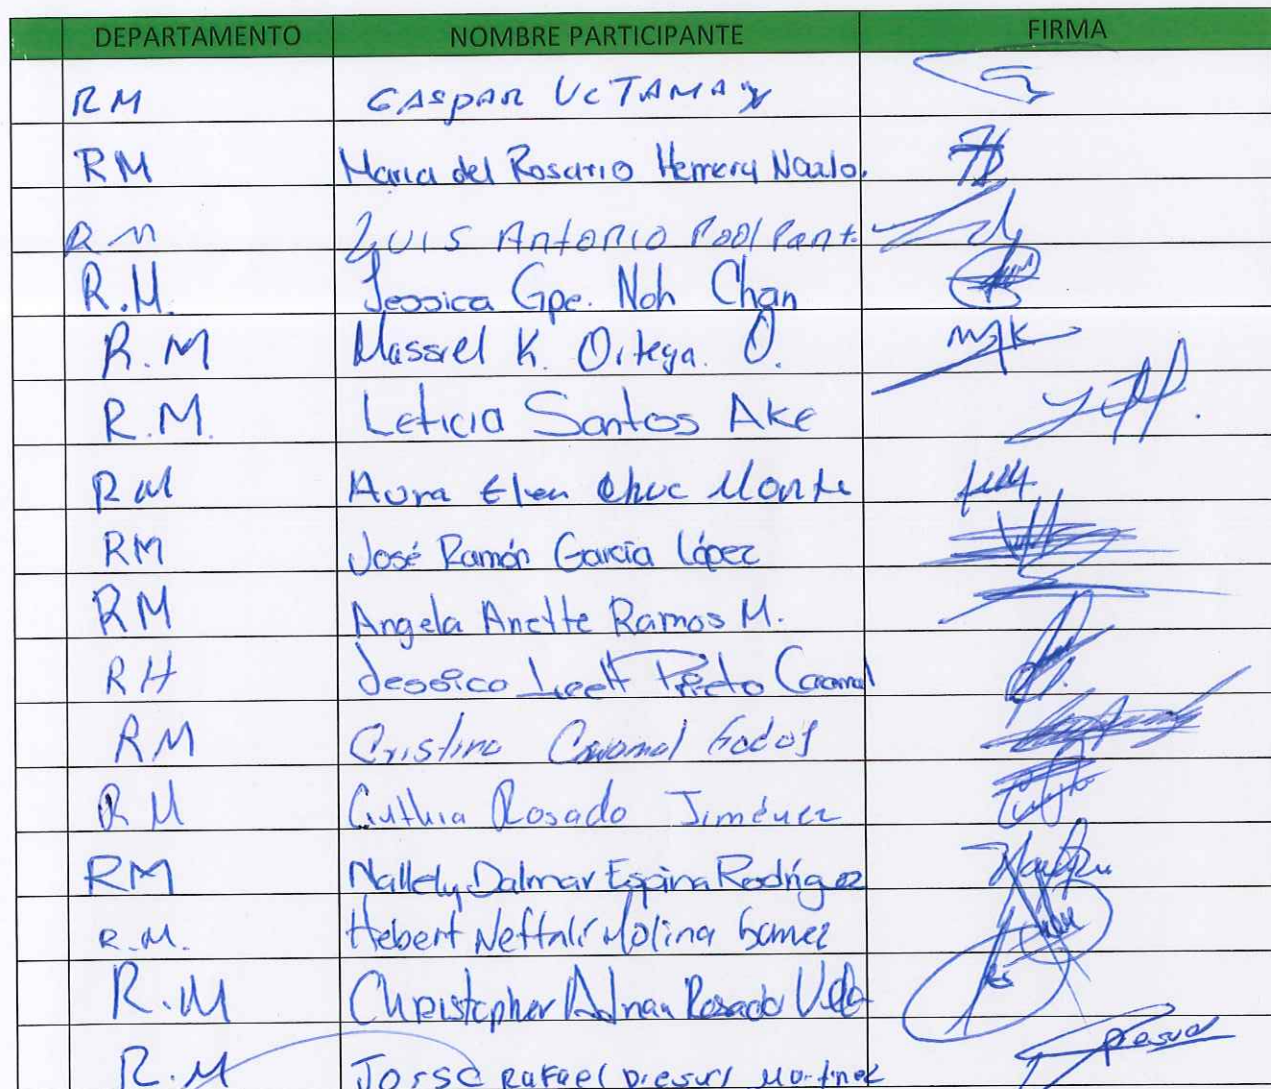 DEPARTAMENTO NOMBRE PARTICIPANTE FIRMA
RM GASPAR UC TAMAY
RM Maria del Rosario Herrera
RM Luis Antonio Pool Pant.
R.M. Jessica Gpe. Noh Chan
R.M Massiel K. Ortega. O.
R.M. Leticia Santos Ake
RM Aura Elen Chuc
RM José Ramón García López
RM Angela Anette Ramos M.
RH Jessica Prieto Caamal
RM Cristina Caamal
RM Cinthia Rosado Jiménez
RM Nallely Dalmar Espina Rodríguez
R.M. Hebert Neftalí Molina Gamez
R.M Christopher Adrian Rosado
R.M Jorge Rafael Martinez